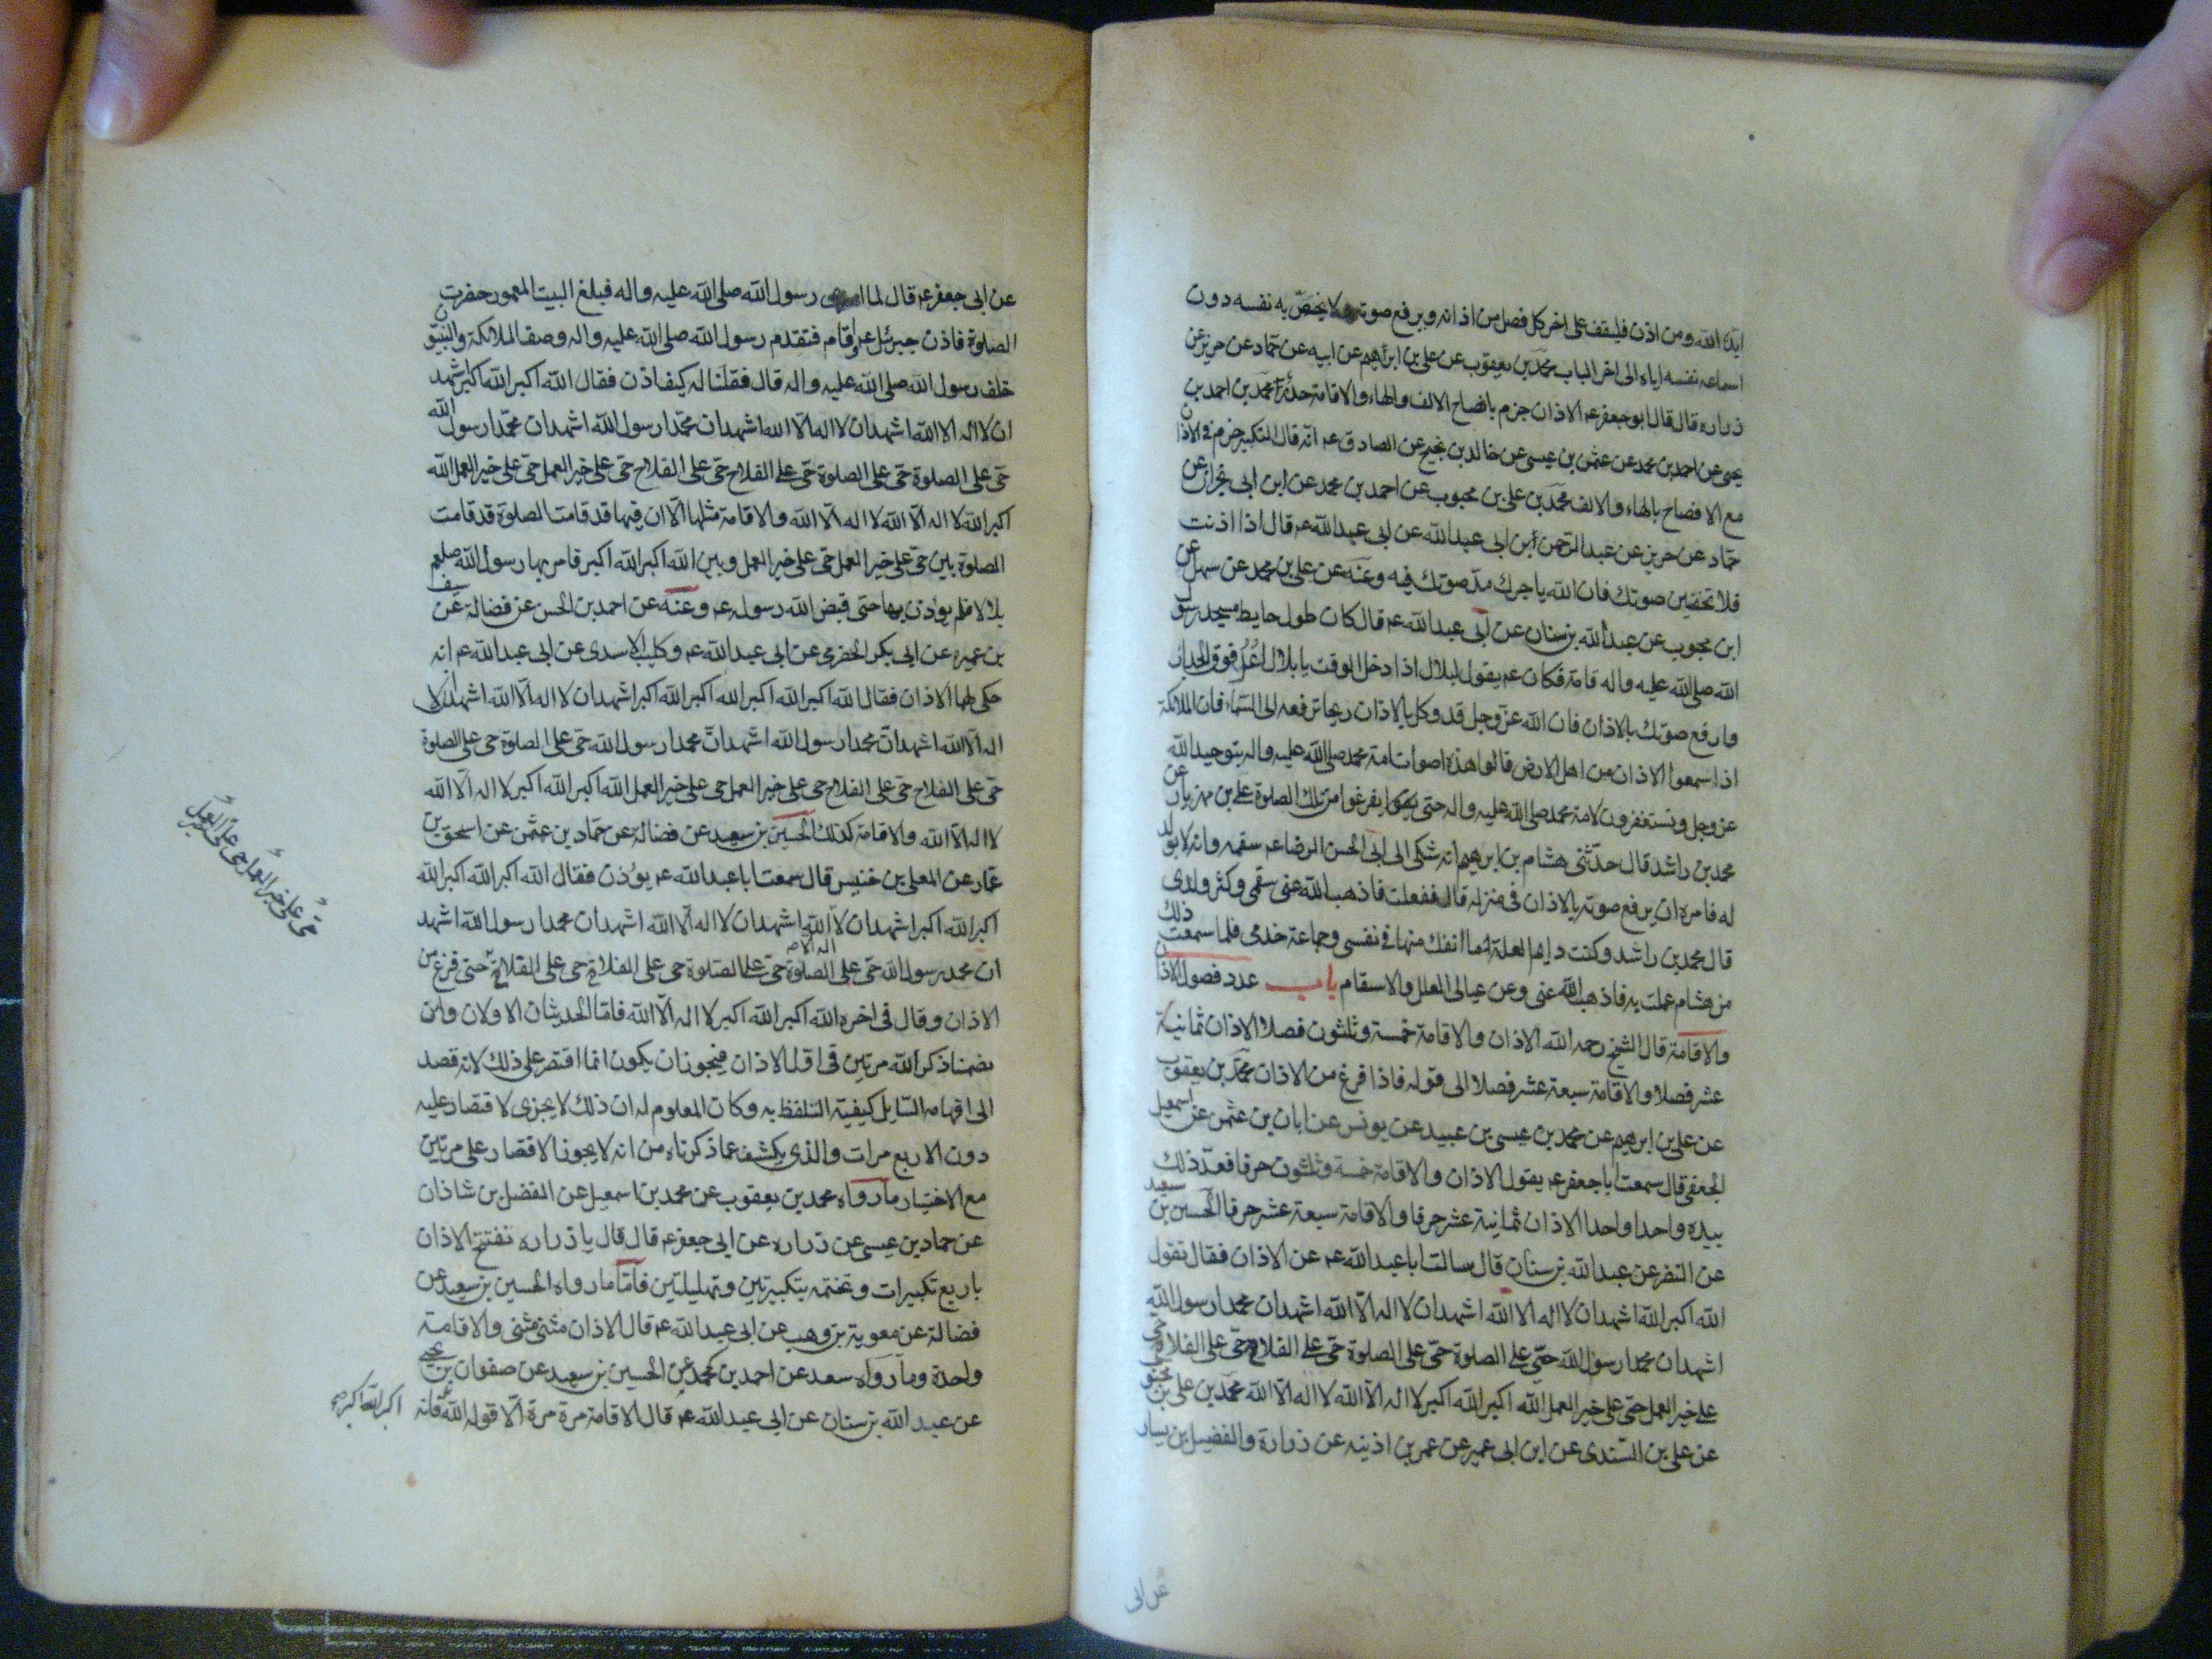 ايده الله ومن اذن فليقف على اخر كل فصل من اذانه ويرفع صوته ولا يخص به نفسه دون
اسماعه نفسه اياه الى اخر الباب محمد بن يعقوب عن علي بن ابراهيم عن ابيه عن حماد عن حريز عن
زراره قال قال ابو جعفر عم الاذان جزم بافصاح الالف والهاء والاقامة حدر محمد بن احمد بن
يحيى عن احمد بن محمد عن عثمن بن عيسى عن خالد بن نجيح عن الصادق عم انه قال التكبير جزم في الاذان
مع الافصاح بالهاء والالف محمد بن علي بن محبوب عن احمد بن محمد عن ابن ابي نجران عن
حماد عن حريز عن عبد الرحمن ابن ابي عبد الله عن ابي عبد الله عم قال اذا اذنت
فلا تخفين صوتك فان الله ياجرك مد صوتك فيه وعنه عن علي بن محمد عن سهل عن
ابن محبوب عن عبد الله بن سنان عن ابي عبد الله عم قال كان طول حايط مسجد رسول
الله صلى الله عليه واله قامة فكان عم يقول لبلال اذا دخل الوقت يا بلال اعل فوق الجدار
وارفع صوتك بالاذان فان الله عز وجل قد وكل بالاذان ريحا ترفعه الى السماء فان الملائكة
اذا سمعوا الاذان من اهل الارض قالوا هذه اصوات امة محمد صلى الله عليه واله بتوحيد الله
عز وجل ونستغفرون لامة محمد صلى الله عليه واله حتى يفرغوا من تلك الصلوة علي بن مهزيار عن
محمد بن راشد قال حدثني هشام بن ابرهيم انه شكى الى ابي الحسن الرضا عم سقمه وانه لا يولد
له فامره ان يرفع صوته بالاذان في منزله قال ففعلت فاذهب الله عني سقمي وكثر ولدي
قال محمد بن راشد وكنت دايم العلة ما انفك منها في نفسي وجماعة خدمي فلما سمعت ذلك
من هشام عملت به فاذهب الله عني وعن عيالي العلل والاسقام باب عدد فصول الاذان
والاقامة قال الشيخ رحمه الله الاذان والاقامة خمسة وثلثون فصلا الاذان ثمانية
عشر فصلا والاقامة سبعة عشر فصلا الى قوله فاذا فرغ من الاذان محمد بن يعقوب
عن علي بن ابرهيم عن محمد بن عيسى بن عبيد عن يونس عن ابان بن عثمن عن اسمعيل
الجعفي قال سمعت ابا جعفر عم يقول الاذان والاقامة خمسة وثلثون حرفا فعد ذلك
بيده واحدا واحدا الاذان ثمانية عشر حرفا والاقامة سبعة عشر حرفا الحسين بن سعيد
عن النضر عن عبد الله بن سنان قال سالت ابا عبد الله عم عن الاذان فقال تقول
الله اكبر الله اشهد ان لا اله الا الله اشهد ان لا اله الا الله اشهد ان محمدا رسول الله
اشهد ان محمدا رسول الله حي على الصلوة حي على الصلوة حي على الفلاح حي على الفلاح حي
على خير العمل حي على خير العمل الله اكبر الله اكبر لا اله الا الله لا اله الا الله محمد بن علي بن محبوب
عن علي بن السندي عن ابن ابي عمير عن عمر بن اذينه عن زرارة والفضيل بن يسار
عن ابي
عن ابي جعفر عم قال لما اسرى رسول الله صلى الله عليه واله فبلغ البيت المعمور حضرت
الصلوة فاذن جبرئيل عم واقام فتقدم رسول الله صلى الله عليه واله وصف الملائكة والنبيون
خلف رسول الله صلى الله عليه واله قال فقلنا له كيف اذن فقال الله اكبر الله اكبر اشهد
ان لا اله الا الله اشهد ان لا اله الا الله اشهد ان محمدا رسول الله اشهد ان محمدا رسول الله
حي على الصلوة حي على الصلوة حي على الفلاح حي على الفلاح حي على خير العمل حي على خير العمل الله
اكبر الله لا اله الا الله لا اله الا الله والاقامة مثلها الا ان فيها قد قامت الصلوة قد قامت
الصلوة بين حي على خير العمل حي على خير العمل وبين الله اكبر الله اكبر فامر بها رسول الله صلعم
بلالا فلم يؤذن بها حتى قبض الله رسوله عم وعنه عن احمد بن الحسن عن فضالة عن سيف
بن عميره عن ابي بكر الحضرمي عن ابي عبد الله عم وكليب الاسدي عن ابي عبد الله عم انه
حكى لهما الاذان فقال الله اكبر الله اكبر الله اكبر الله اكبر اشهد ان لا اله الا الله اشهد ان لا
اله الا الله اشهد ان محمدا رسول الله اشهد ان محمدا رسول الله حي على الصلوة حي على الصلوة
حي على الفلاح حي على الفلاح حي على خير العمل حي على خير العمل الله اكبر الله اكبر لا اله الا الله
لا اله الا الله والاقامة كذلك الحسين بن سعيد عن فضالة عن حماد بن عثمن عن اسحق بن
عمار عن المعلى بن خنيس قال سمعت ابا عبد الله عم يؤذن فقال الله اكبر الله اكبر الله
اكبر الله اكبر اشهد ان لا الله اشهد ان لا اله الا الله اشهد ان محمدا رسول الله اشهد
اله الا
ان محمد رسول الله حي على الصلوة حي على الصلوة حي على الفلاح حي على الفلاح حتى فرغ من
الاذان وقال في اخره الله اكبر الله اكبر لا اله الا الله فاما الحديثان الاولان وان
تضمنا ذكر الله مرتين في اول الاذان فيجوز ان يكون انما اقتصر على ذلك لانه قصد
الى افهامه السايل كيفية التلفظ به وكان المعلوم له ان ذلك لا يجزي الاقتصار عليه
دون الاربع مرات والذي يكشف عما ذكرناه من انه لا يجوز الاقتصار على مرتين
مع الاختيار ما رواه محمد بن يعقوب عن محمد بن اسمعيل عن الفضل بن شاذان
عن حماد بن عيسى عن زراره عن ابي جعفر عم قال قال يا زراره تفتتح الاذان
باربع تكبيرات وتختمه بتكبيرتين وتهليلتين فاما ما رواه الحسين بن سعيد عن
فضالة عن معوية بن وهب عن ابي عبد الله عم قال الاذان مثنى مثنى والاقامة
واحدة وما رواه سعد عن احمد بن محمد عن الحسين بن سعيد عن صفوان بن يحيى
عن عبد الله بن سنان عن ابي عبد الله عم قال الاقامة مرة مرة الا قوله الله فانه
اكبر الله اكبر
حي على خير العمل حي على خير العمل